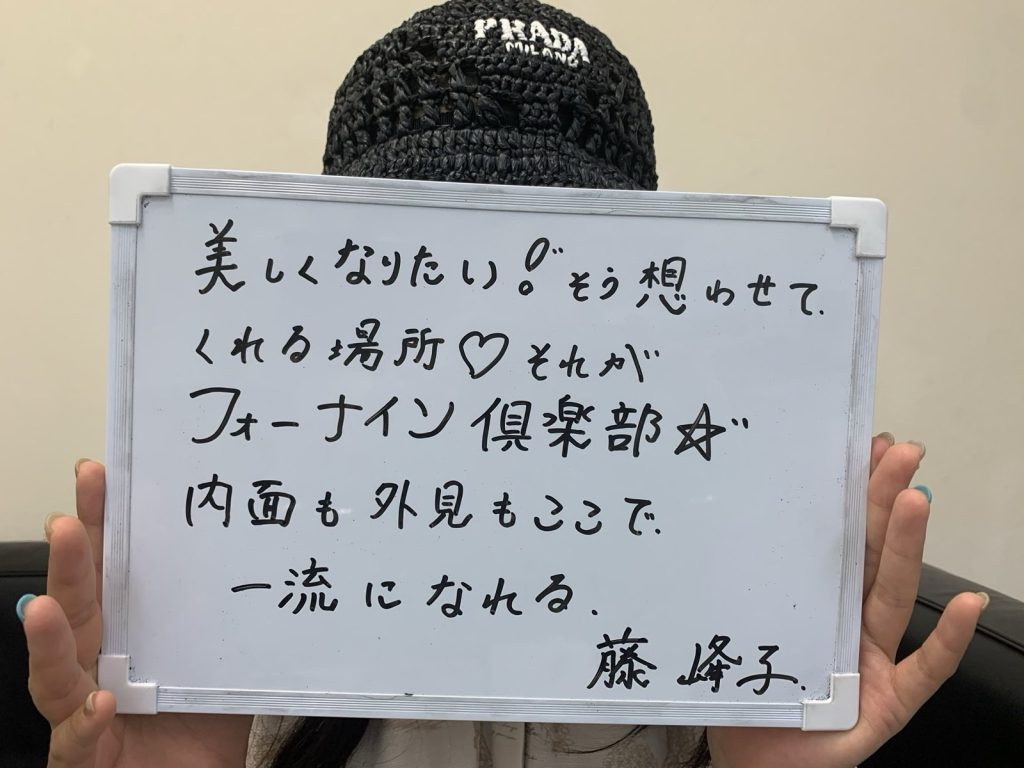 PRADA
MILANO
美しくなりたい!そう想わせて
くれる場所♡それが
フォーナイン倶楽部☆
内面も外見もここで
一流になれる.
藤 峰子.